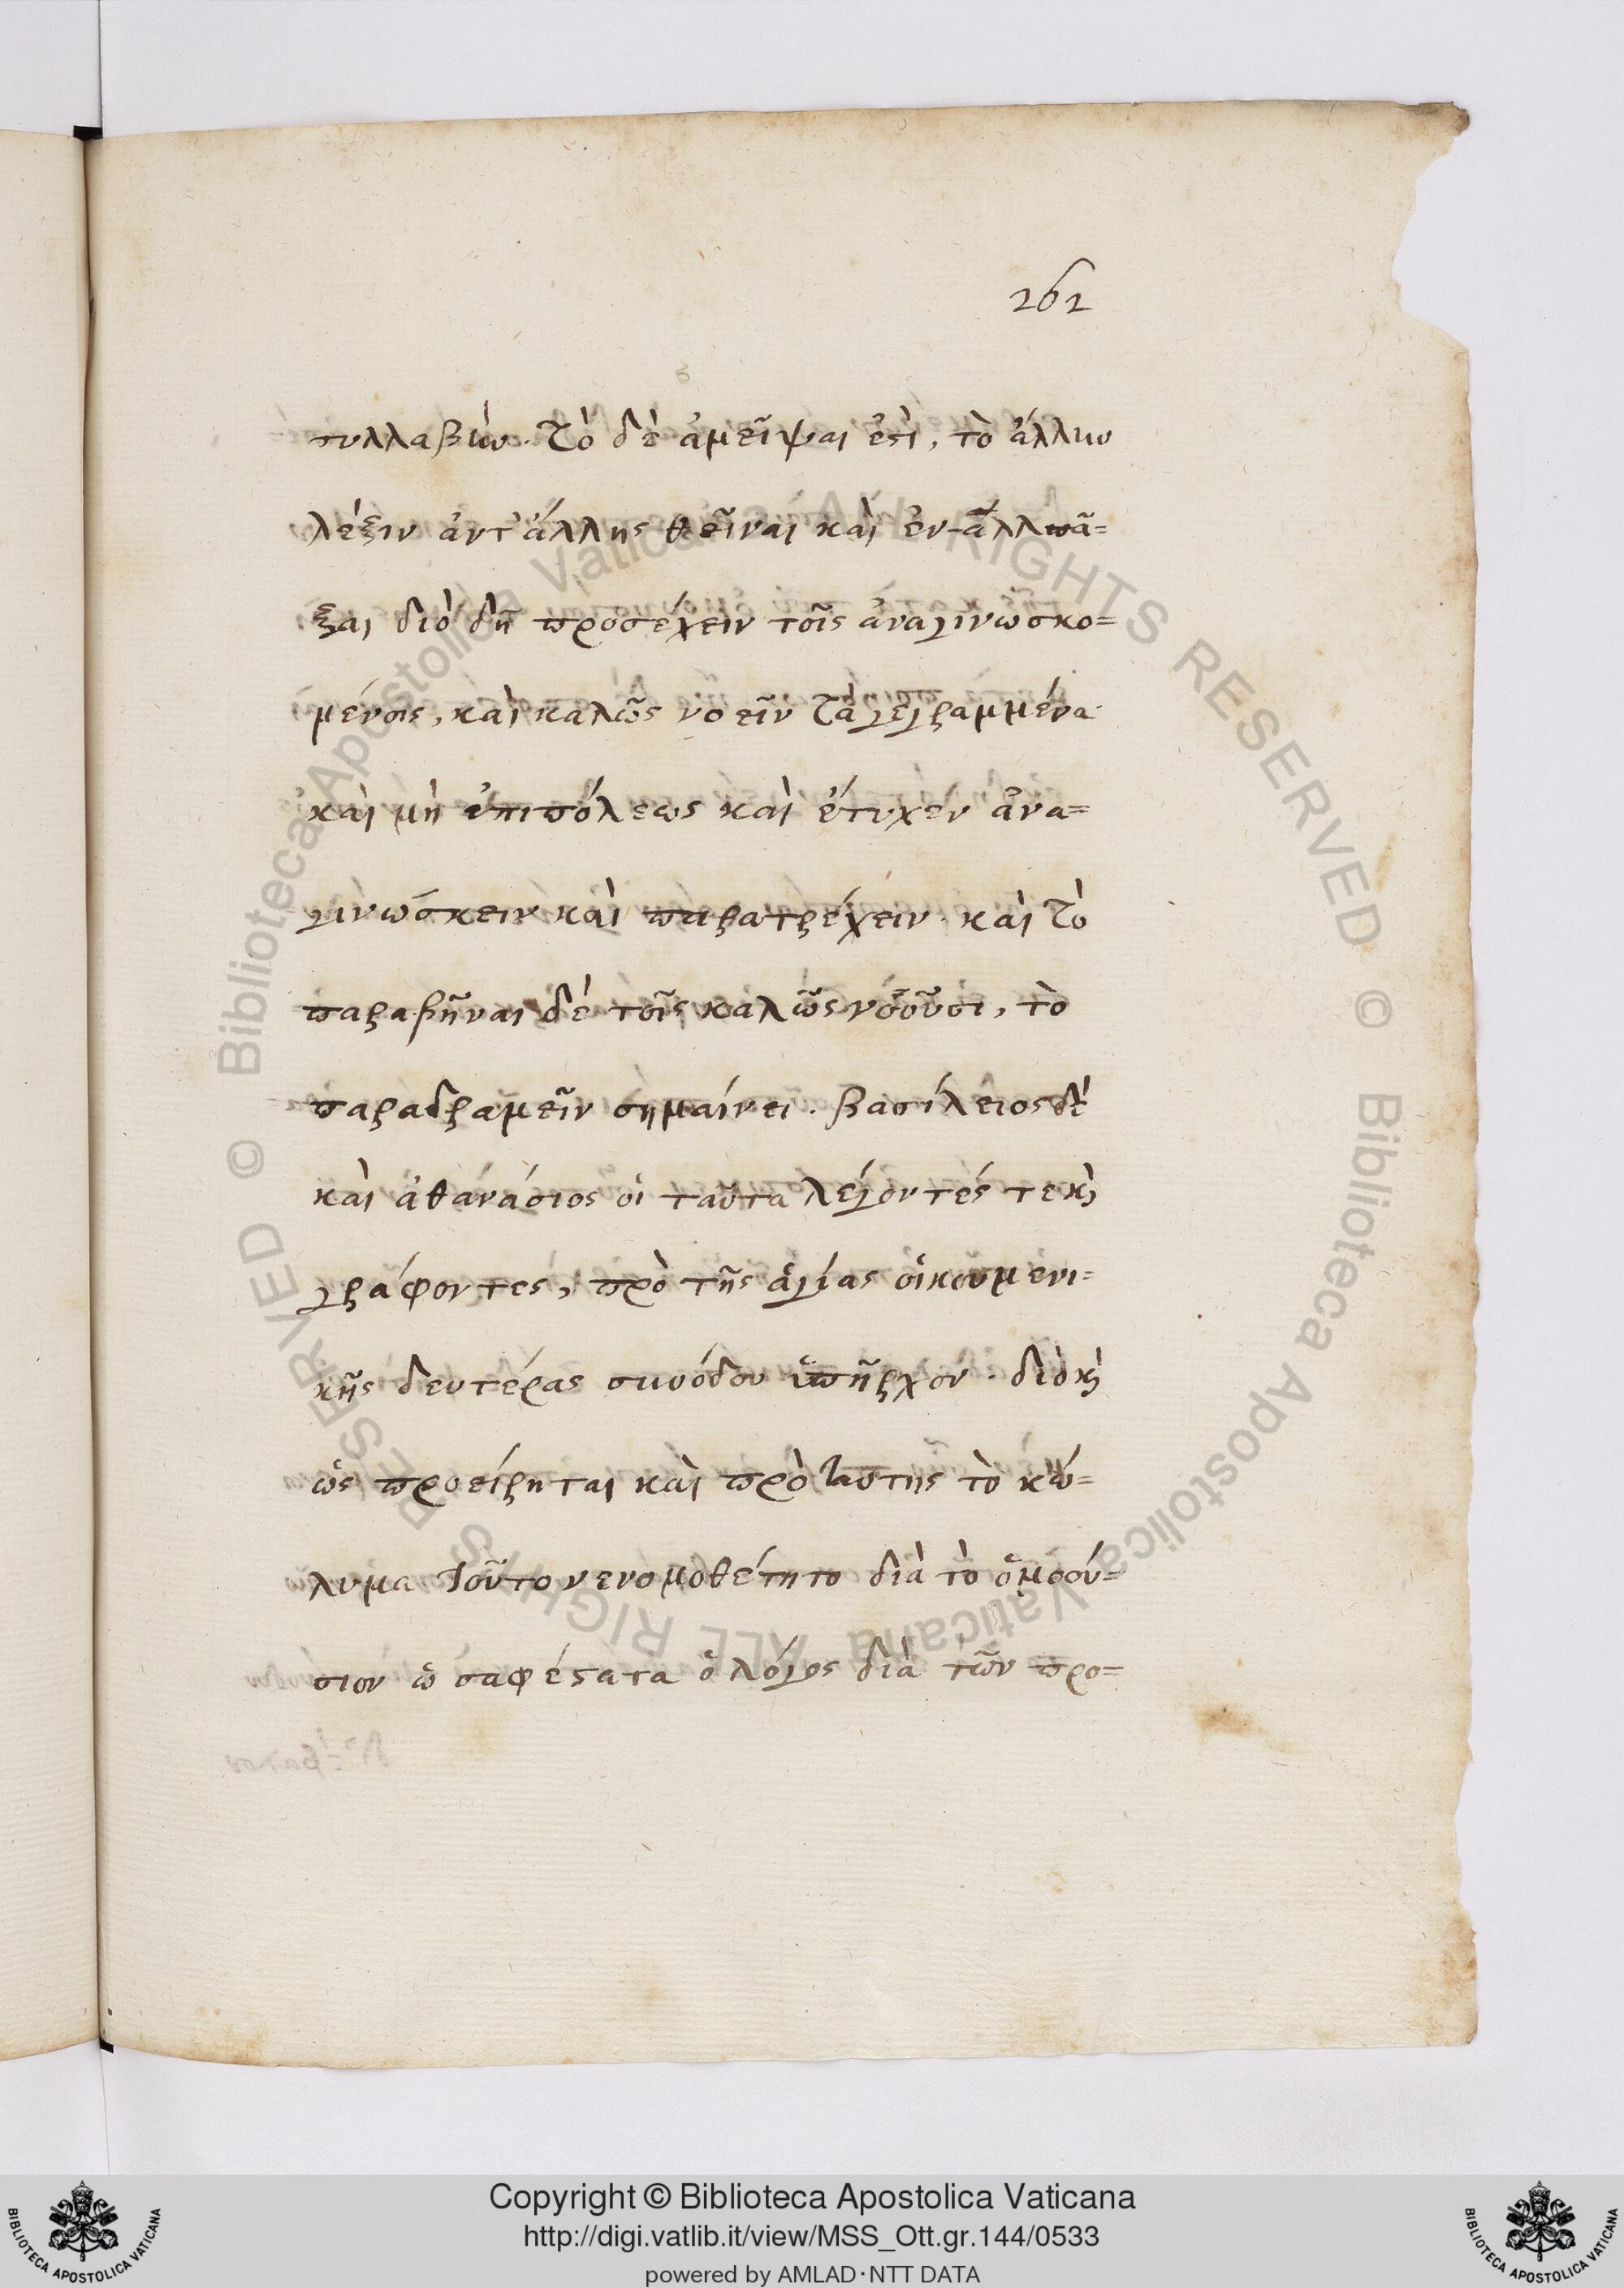 262
συλλαβὼν· Τὸ δὲ ἀμεῖψαι ἐστὶ, τὸ ἄλλην
λέξιν ἀντ' ἄλλης θεῖναι καὶ ἐν ἀλλ πᾶ=
ξαι διὸ δῆ προσέχειν τοῖς ἀναγινωσκο=
μένοις, καὶ καλῶς νοεῖν τὰ γεγραμμένα·
καὶ μὴ ἐπιπόλεως καὶ ἔτυχεν ἀνα=
γινώσκειν καὶ παρατρέχειν· καὶ Τὸ
παραβῆναι δὲ τοῖς καλῶς νοοῦσι, τὸ
παραδραμεῖν σημαίνει. βασίλειος δὲ
καὶ ἀθανάσιος οἱ ταῦτα λέγοντές τε καὶ
γράφοντες, πρὸ τῆς ἁγίας οἰκουμενι=
κῆς δευτέρας συνόδου ὑπῆρχον· διὸ καὶ
ὡς προείρηται καὶ πρὸ ταύτης τὸ κώ=
λυμα τοῦτο νενομοθέτητο διὰ τὸ ὁμοού=
σιον ὡ σαφέστατα ὁ λόγος διὰ τῶν προ=
Biblioteca Apostolica Vaticana ALL RIGHTS RESERVED ©
Biblioteca Apostolica Vaticana ALL RIGHTS RESERVED ©
Copyright © Biblioteca Apostolica Vaticana
http://digi.vatlib.it/view/MSS_Ott.gr.144/0533
powered by AMLAD·NTT DATA
BIBLIOTECA APOSTOLICA VATICANA
BIBLIOTECA APOSTOLICA VATICANA